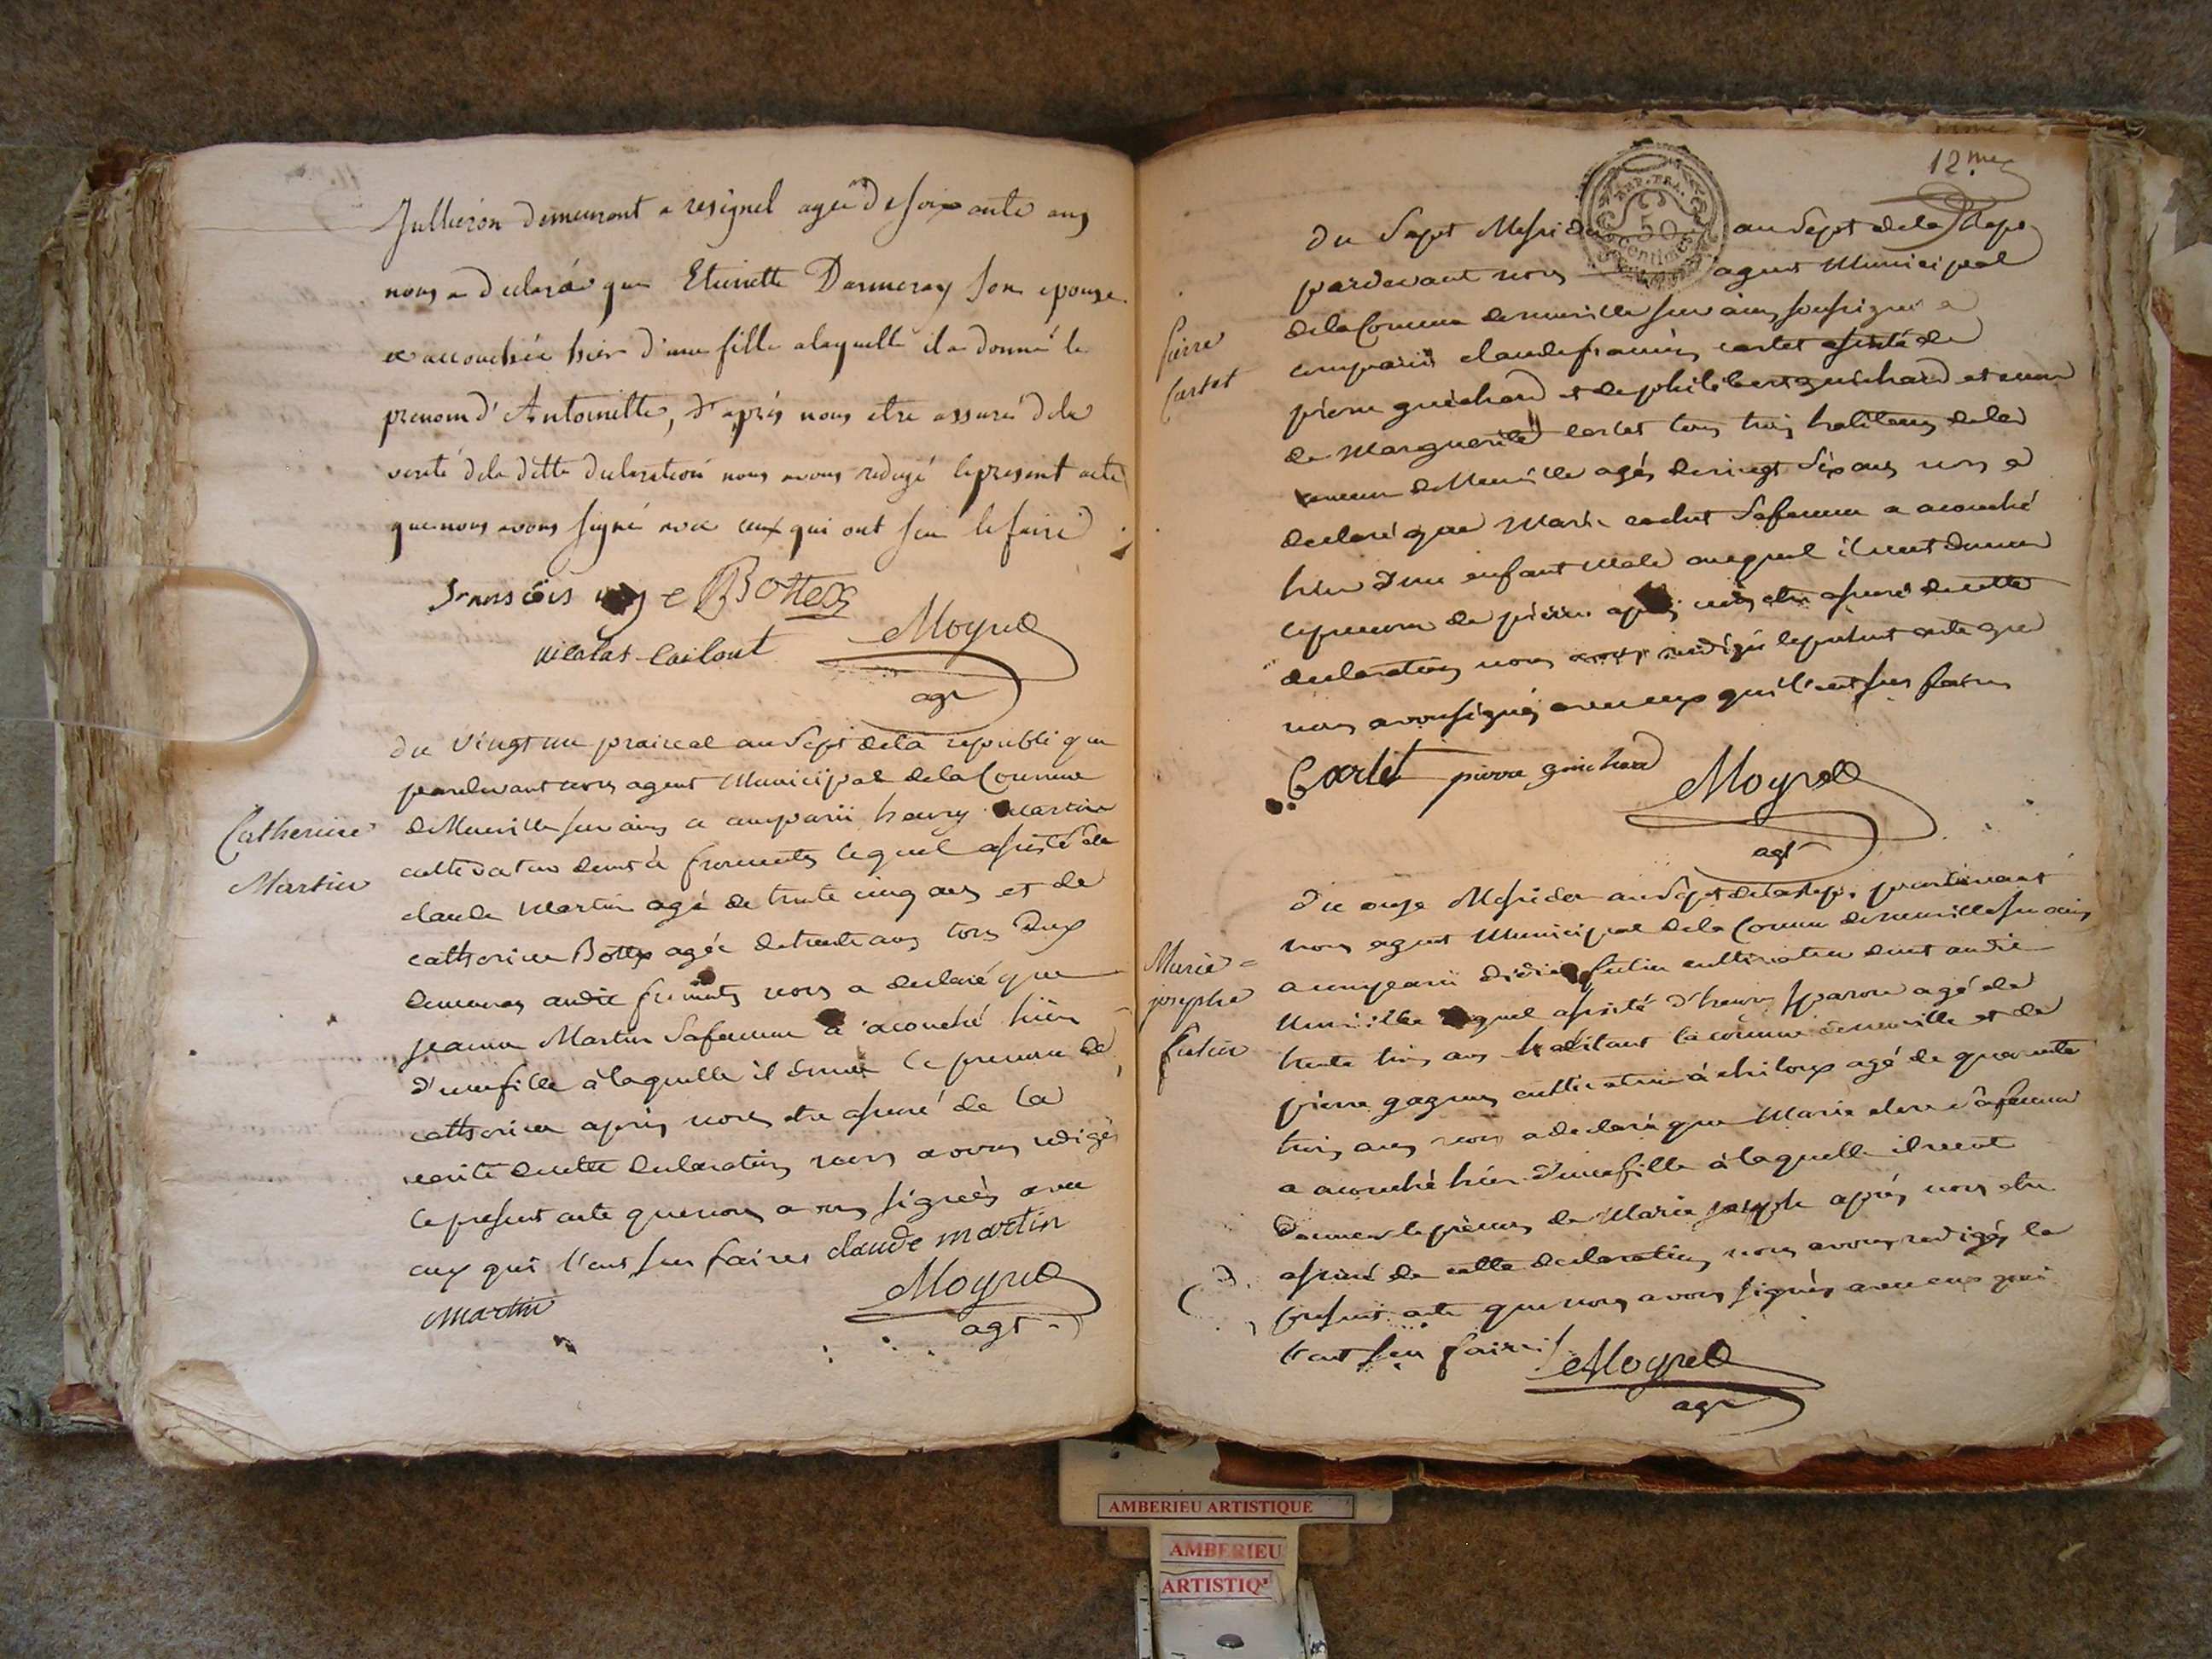 Jullieron demeurant a resignel agée de soixante ans
nous a declaré que Etiennette Darmeray son epouse
accouchée hier d'une fille a laquelle il a donné le
prenom d'Antoinette, d'après nous etre assuré dela
verité dela ditte declaration nous avons redigé le present acte
que nous avons signé avec ceux qui ont sçu le faire
Bottex
nicolas Moyret
agt
du vingt un praireal an sept dela republique
pardevant nous agent Municipal dela Commune
de Neuville sur ains a comparü henry Martin
Catherine
Martin
cultivateur demt à fromentes lequel assisté de
claude Martin agé de trente cinq ans et de
catherine Bottex agée de trente ans tous deux
demeurans audit nous a declaré que
jeanne Martin sa femme a acouché hièr
d'une fille à laquelle il donne le prenom de
catherine après nous etre assuré de la
verité de cette declaration nous avons redigés
le present acte que nous avons signées avec
ceux qui l'ont sçu faires claude martin
martin Moyret
agt
12.me
50 Centimes
du Sept Messidor an Sept dela Rep.
pardevant nous agent Municipal
dela Commune de neuville sur ains soussigné a
pierre
Cartet
comparü claude françois cartet assisté de
pierre guichard et de philibert guichard et
de Marguerite cartet tous trois habitans dela
commune de Neuville agés de vingt six ans nous a
declaré que Marie sa femme a acouché
hier d'un enfant male auquel il veut donner
le prenom de pierre après nous etre assuré de cette
declaration nous avons redigé le present acte que
nous avons signés avec ceux qui l'ont sçu faires
Cartet pierre guichard Moyret
agt
du onze Messidor an Sept dela Rep. pardevant
nous agent Municipal dela Comune de neuville sur ains
Marie=
josephe
a comparü didier cultivateur demt audit
Neuville lequel assisté d'henry agé de
trente trois ans habitant la comune de neuville et de
pierre cultivateur à chiloup agé de quarante
trois ans nous a declaré que Marie sa femme
a acouché hier d'une fille à laquelle il veut
donner le prénom de Marie joseph après nous etre
assuré de cette declaration nous avons redigés le
present acte que nous avons signés avec ceux qui
l'ont sçu faires Moyret
agt
AMBERIEU ARTISTIQUE
AMBERIEU
ARTISTIQ